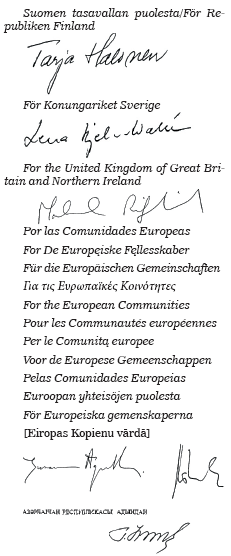 Suomen tasavallan puolesta/För Re-
publiken Finland
Tarja Halonen
För Konungariket Sverige
Lena Hjelm-Wallén
For the United Kingdom of Great Bri-
tain and Northern Ireland
Por las Comunidades Europeas
For De Europęiske Fęllesskaber
Für die Europäischen Gemeinschaften
Για τις Ευρωπαϊκές Κοινότητες
For the European Communities
Pour les Communautés européennes
Per le Comunitą europee
Voor de Europese Gemeenschappen
Pelas Comunidades Europeias
Euroopan yhteisöjen puolesta
För Europeiska gemenskaperna
[Eiropas Kopienu vārdā]
АЗӘРБАЈҸАН РЕСПУБЛИКАСЫ АДЫНДАН